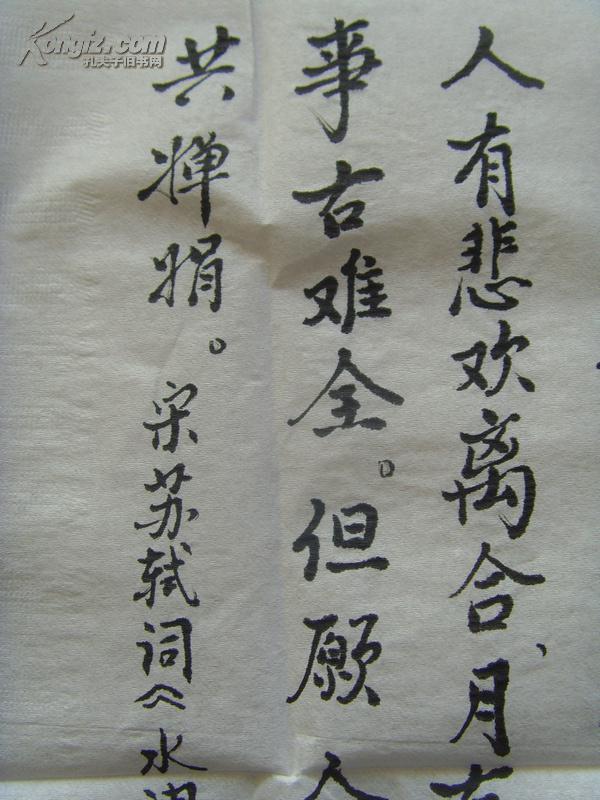 Kongfz.com
孔夫子旧书网
人有悲欢离合、月有
事古难全。但愿人
共婵娟。宋苏轼词《水